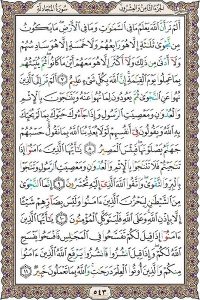 الجزء الثامن والعشرون سورة المجادلة
أَلَمْ تَرَ أَنَّ ٱللَّهَ يَعْلَمُ مَا فِى ٱلسَّمَٰوَٰتِ وَمَا فِى ٱلْأَرْضِ مَا يَكُونُ
مِن نَّجْوَىٰ ثَلَٰثَةٍ إِلَّا هُوَ رَابِعُهُمْ وَلَا خَمْسَةٍ إِلَّا هُوَ سَادِسُهُمْ
وَلَآ أَدْنَىٰ مِن ذَٰلِكَ وَلَآ أَكْثَرَ إِلَّا هُوَ مَعَهُمْ أَيْنَ مَا كَانُوا۟ ثُمَّ يُنَبِّئُهُم
بِمَا عَمِلُوا۟ يَوْمَ ٱلْقِيَٰمَةِ إِنَّ ٱللَّهَ بِكُلِّ شَىْءٍ عَلِيمٌ ٧ أَلَمْ تَرَ إِلَى ٱلَّذِينَ
نُهُوا۟ عَنِ ٱلنَّجْوَىٰ ثُمَّ يَعُودُونَ لِمَا نُهُوا۟ عَنْهُ وَيَتَنَٰجَوْنَ بِٱلْإِثْمِ
وَٱلْعُدْوَٰنِ وَمَعْصِيَتِ ٱلرَّسُولِ وَإِذَا جَآءُوكَ حَيَّوْكَ بِمَا لَمْ يُحَيِّكَ
بِهِ ٱللَّهُ وَيَقُولُونَ فِىٓ أَنفُسِهِمْ لَوْلَا يُعَذِّبُنَا ٱللَّهُ بِمَا نَقُولُ حَسْبُهُمْ
جَهَنَّمُ يَصْلَوْنَهَا فَبِئْسَ ٱلْمَصِيرُ ٨ يَٰٓأَيُّهَا ٱلَّذِينَ ءَامَنُوٓا۟ إِذَا
تَنَٰجَيْتُمْ فَلَا تَتَنَٰجَوْا۟ بِٱلْإِثْمِ وَٱلْعُدْوَٰنِ وَمَعْصِيَتِ ٱلرَّسُولِ وَتَنَٰجَوْا۟
بِٱلْبِرِّ وَٱلتَّقْوَىٰ وَٱتَّقُوا۟ ٱللَّهَ ٱلَّذِىٓ إِلَيْهِ تُحْشَرُونَ ٩ إِنَّمَا ٱلنَّجْوَىٰ
مِنَ ٱلشَّيْطَٰنِ لِيَحْزُنَ ٱلَّذِينَ ءَامَنُوا۟ وَلَيْسَ بِضَآرِّهِمْ شَيْـًٔا
إِلَّا بِإِذْنِ ٱللَّهِ وَعَلَى ٱللَّهِ فَلْيَتَوَكَّلِ ٱلْمُؤْمِنُونَ ١٠ يَٰٓأَيُّهَا ٱلَّذِينَ
ءَامَنُوٓا۟ إِذَا قِيلَ لَكُمْ تَفَسَّحُوا۟ فِى ٱلْمَجَٰلِسِ فَٱفْسَحُوا۟ يَفْسَحِ
ٱللَّهُ لَكُمْ وَإِذَا قِيلَ ٱنشُزُوا۟ فَٱنشُزُوا۟ يَرْفَعِ ٱللَّهُ ٱلَّذِينَ ءَامَنُوا۟
مِنكُمْ وَٱلَّذِينَ أُوتُوا۟ ٱلْعِلْمَ دَرَجَٰتٍ وَٱللَّهُ بِمَا تَعْمَلُونَ خَبِيرٌ ١١
٥٤٣